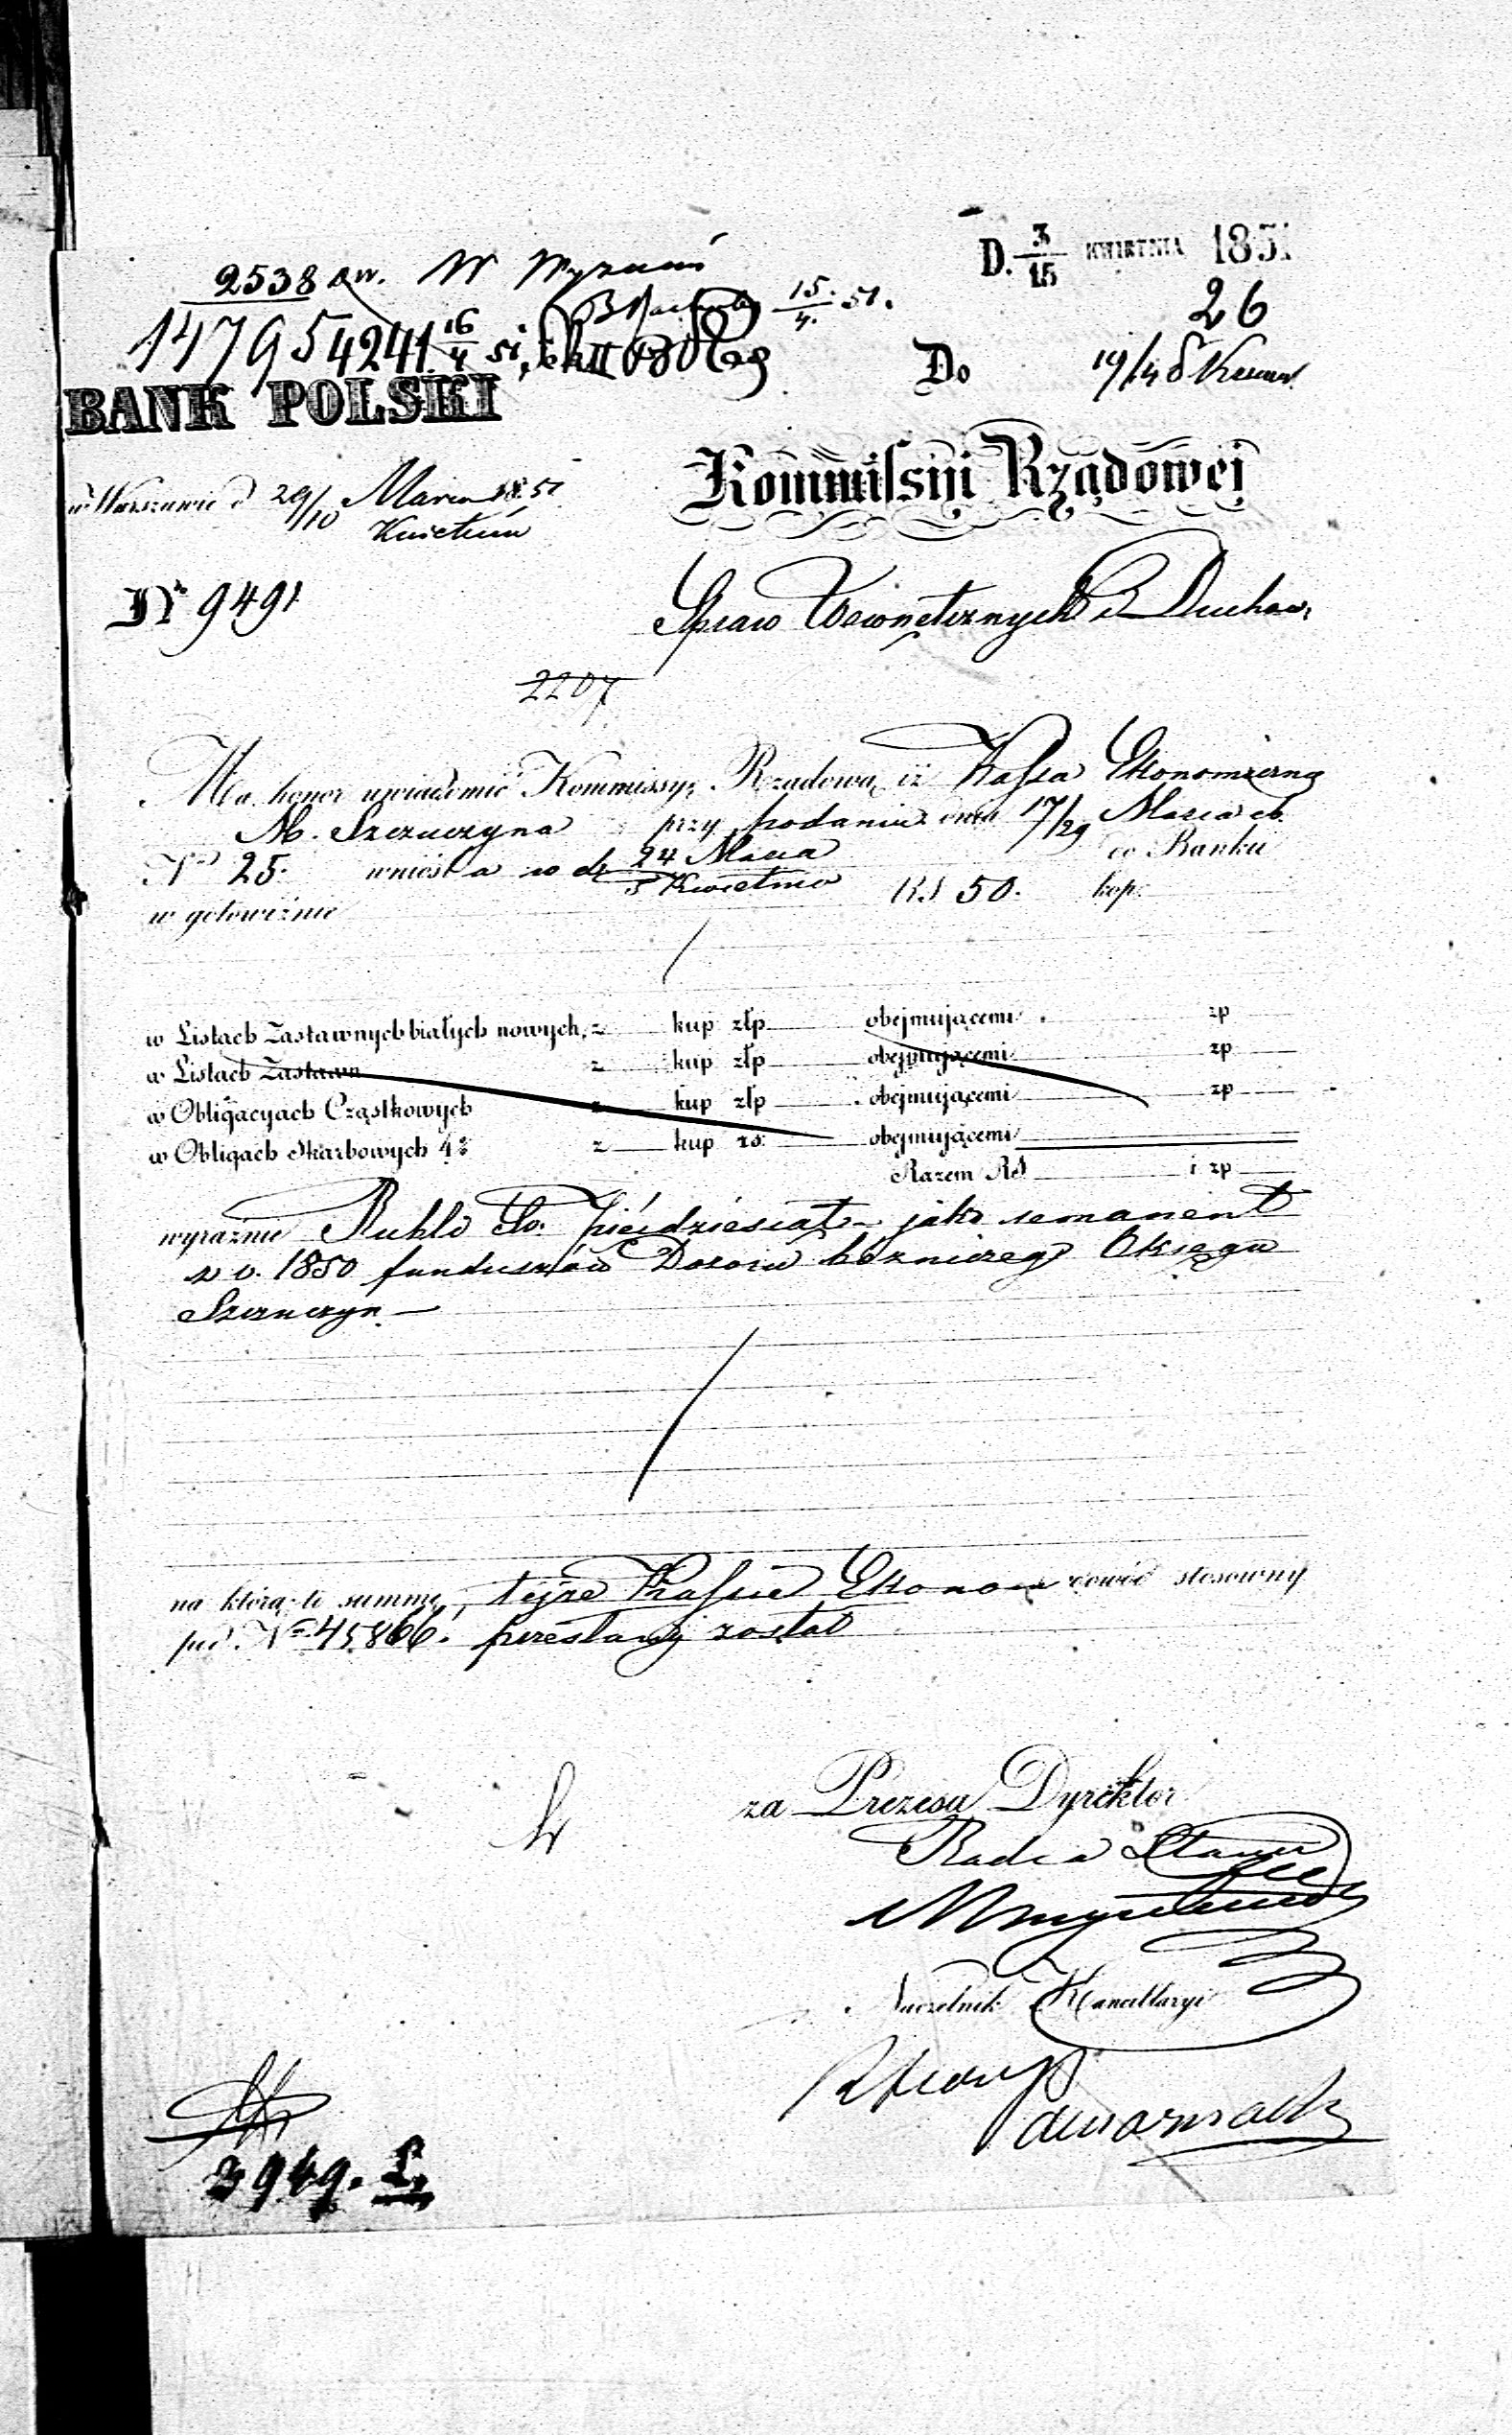 D. 3/15 KWIETNIA 185
2538
26
15/4. 51.
147954241 16/4 51
Do
19/4
BANK POLSKI
Kommissyi Rządowej
w Warszawie d 29/10 Marca 1851
Kwietnia
Nr 9491
Spraw Wewnętrznych i Duchow.
2207
Ma honor uwiadomić Kommissyę Rządową iż Kassa Ekonomiczna
M. Szczuczyna przy podaniu z dnia 17/29 Marca cb.
No 25. wniosła w d. 24 Marca / 5 Kwietnia do Banku
w gotowiźnie RS 50. kop.
w Listach Zastawnych białych nowych, z kup złp obejmującemi zp
w Listach Zastawn z kup złp obejmującemi zp
w Obligacyach Cząstkowych z kup złp obejmującemi zp
w Obligach Skarbowych 4% z kup rs: obejmującemi
Razem RS i zp
wyraźnie Rubli Sr. Pięćdziesiąt – jako remanent
z r. 1850 funduszów Dozoru bóżniczego Okręgu
Szczuczyn. —
na którą to summę, tejże Kassie Ekonom dowód stosowny
pod No 45866. przesłany został
za Prezesa Dyrektor
Radca Stanu
Naczelnik Kancellaryi
3949. L.